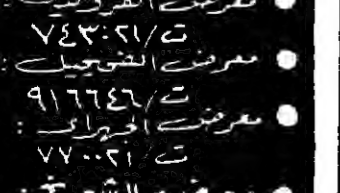 معرض الفروانية :
ت/٧٤٣٠٢١
● معرض الفحيحيل :
ت/٩١٦٦٤٦
● معرض الجهراء :
ت/٧٧٠٠٢١